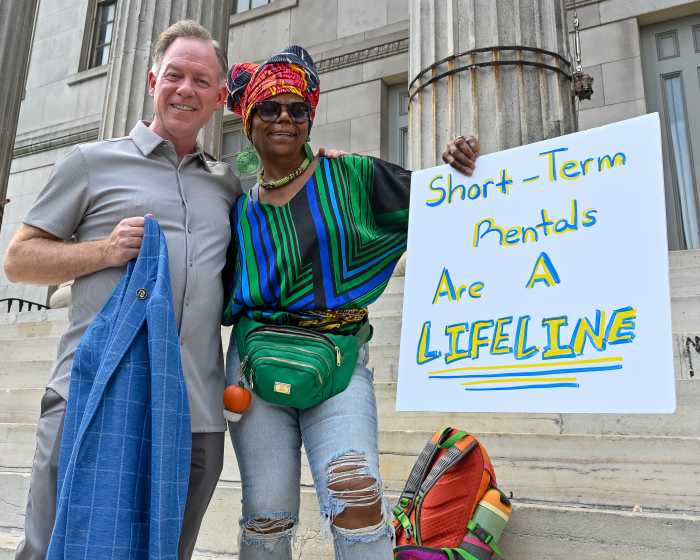 Short-Term
Rentals
Are A
LIFELINE